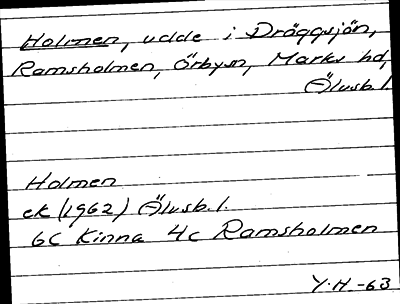 Holmen, udde i Dräggsjön,
Ramsholmen, Örbysn, Marks hd,
Älvsb. l.
Holmen
ek (1962) Älvsb. l.
6C Kinna 4c Ramsholmen
Y.H.-63